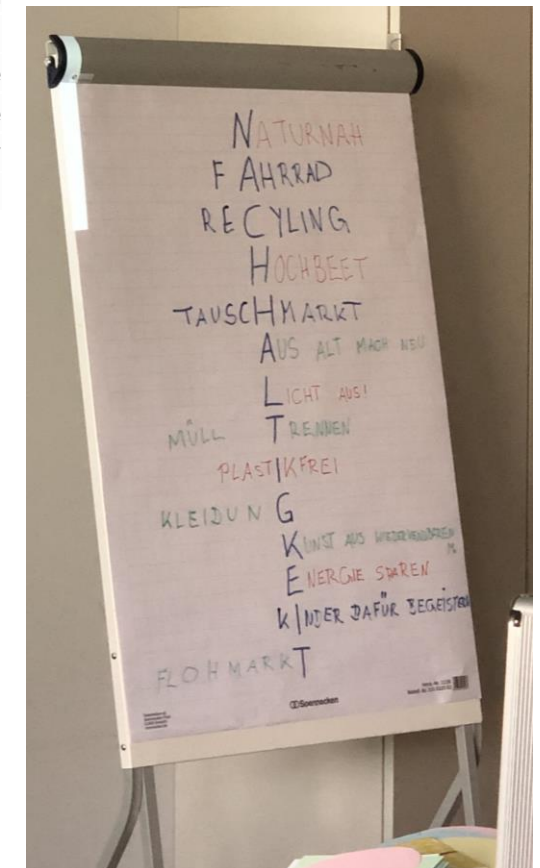 NATURNAH
FAHRRAD
RECYLING
HOCHBEET
TAUSCHMARKT
AUS ALT MACH NEU
LICHT AUS!
MÜLL TRENNEN
PLASTIKFREI
KLEIDUNG
KUNST AUS
ENERGIE SPAREN
KINDER DAFÜR BEGEISTERN
FLOHMARKT
Soennecken